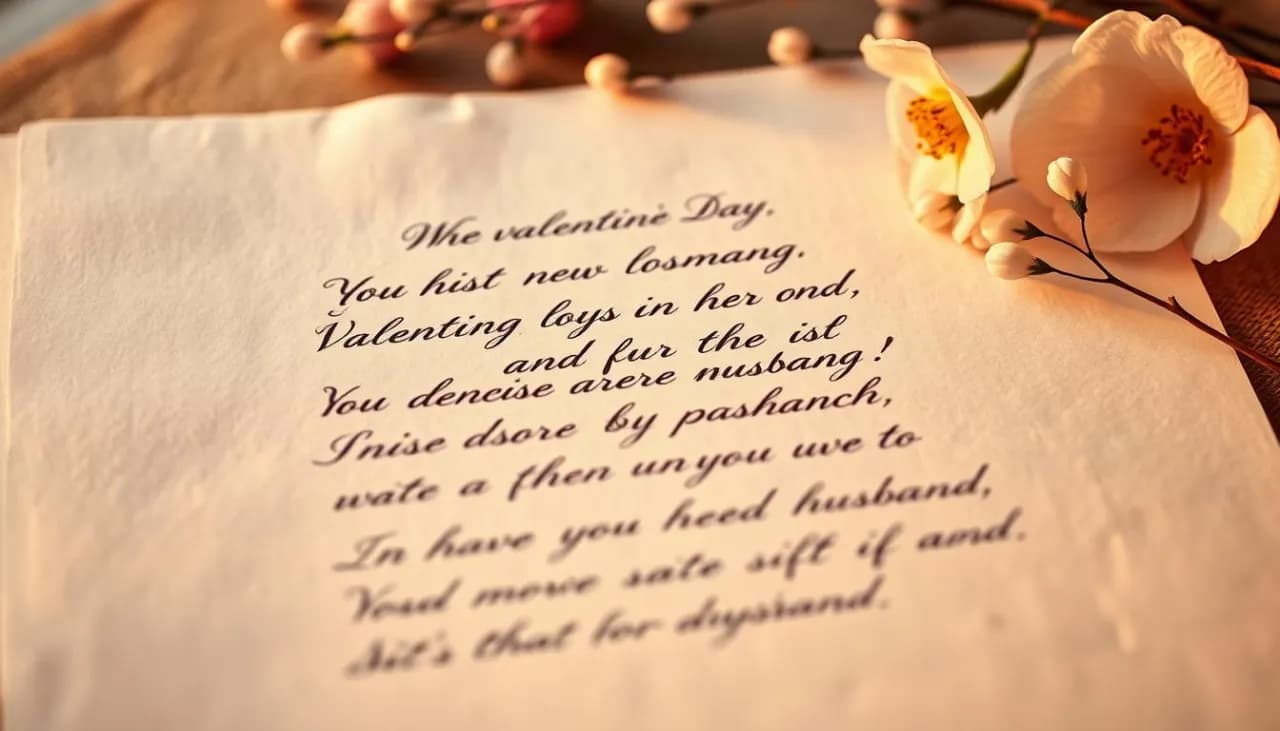 Whe valentine Day.
You hist new losmang.
Valenting loys in her ond,
and fur the ist
You denceise arere nusbang!
Inise dsore by pashanch,
wate a fhen unyou uve to
In have you heed husband,
Youd mowe sate sift if amd.
that for